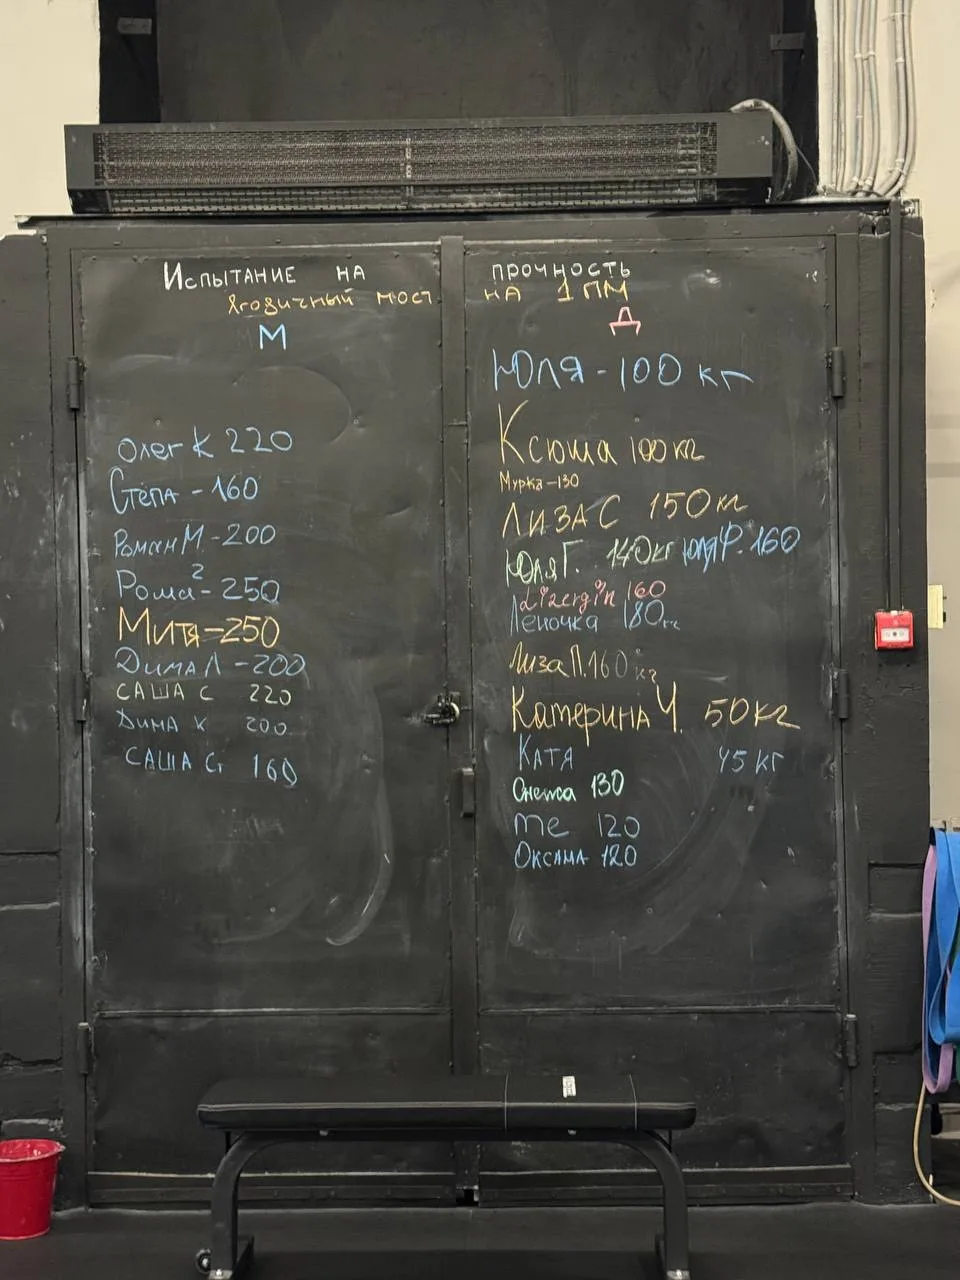 Испытание на прочность
Ягодичный мост на 1 ПМ
М
Олег К 220
Стёпа - 160
Роман М. - 200
Рома 2 - 250
Митя - 250
Дима Л - 200
САША С 220
Дима К 200
САША G 160
Д
Юля - 100 кг
Ксюша 100 кг
Мурка - 130
Лиза С 150 кг
Юля Г. 140 кг Юля Ф. 160
Lizergin 160
Леночка 180 кг
Лиза П. 160 кг
Катерина Ч. 50 кг
Катя 45 кг
130
me 120
Оксана 120